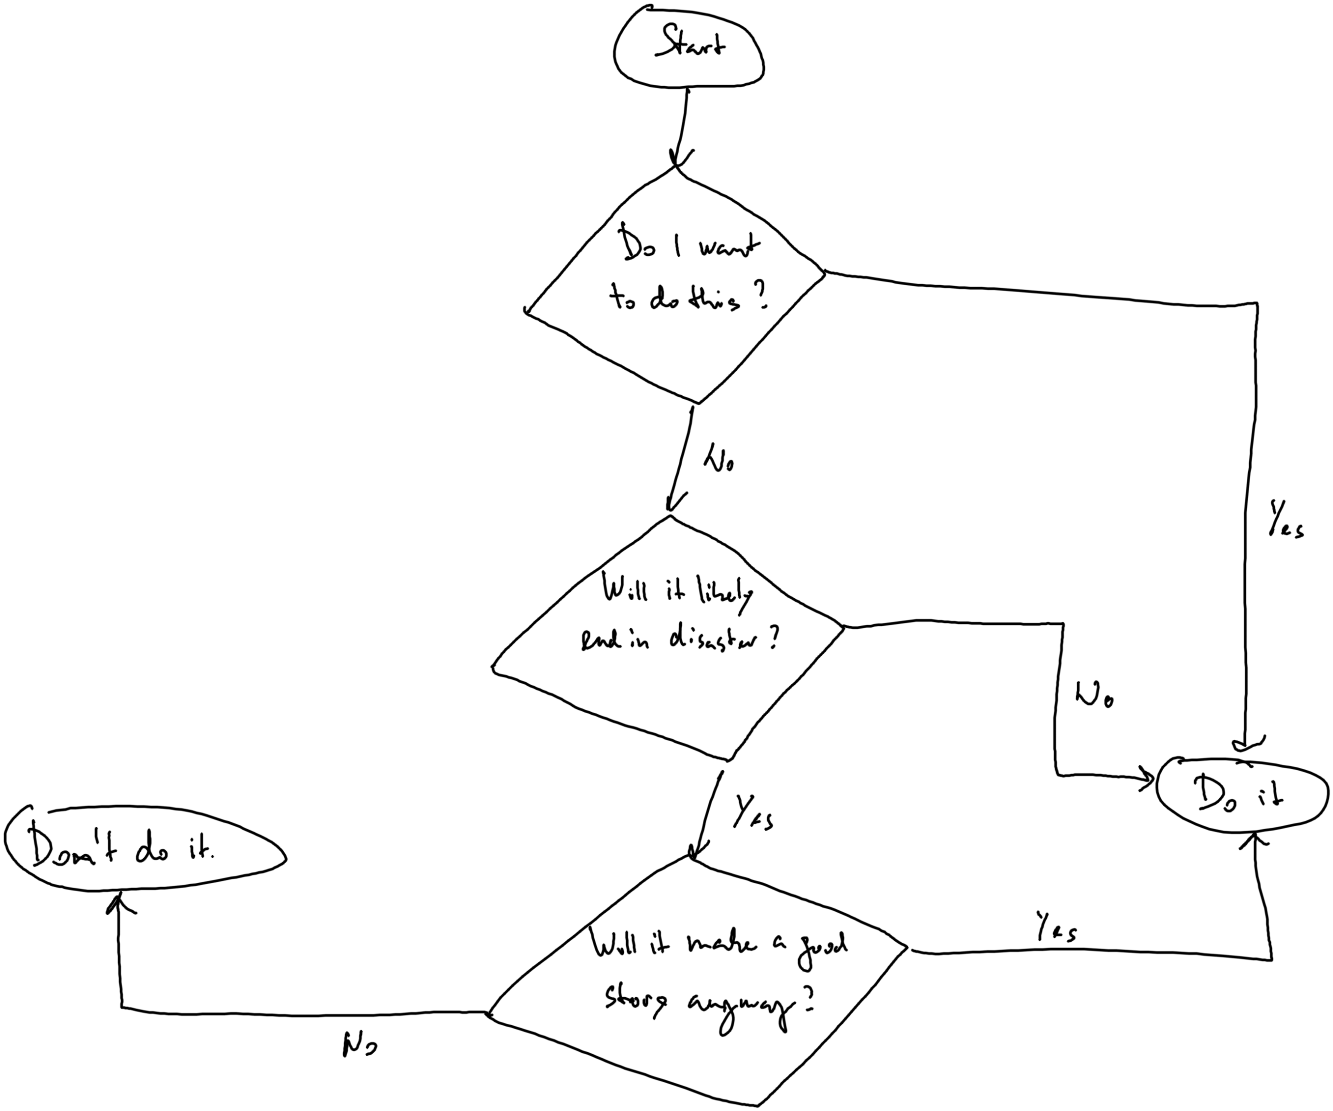 Start
Do I want
to do this?
No
Yes
Will it likely
end in disaster?
No
Do it
Yes
Don't do it.
Will it make a good
story anyway?
Yes
No